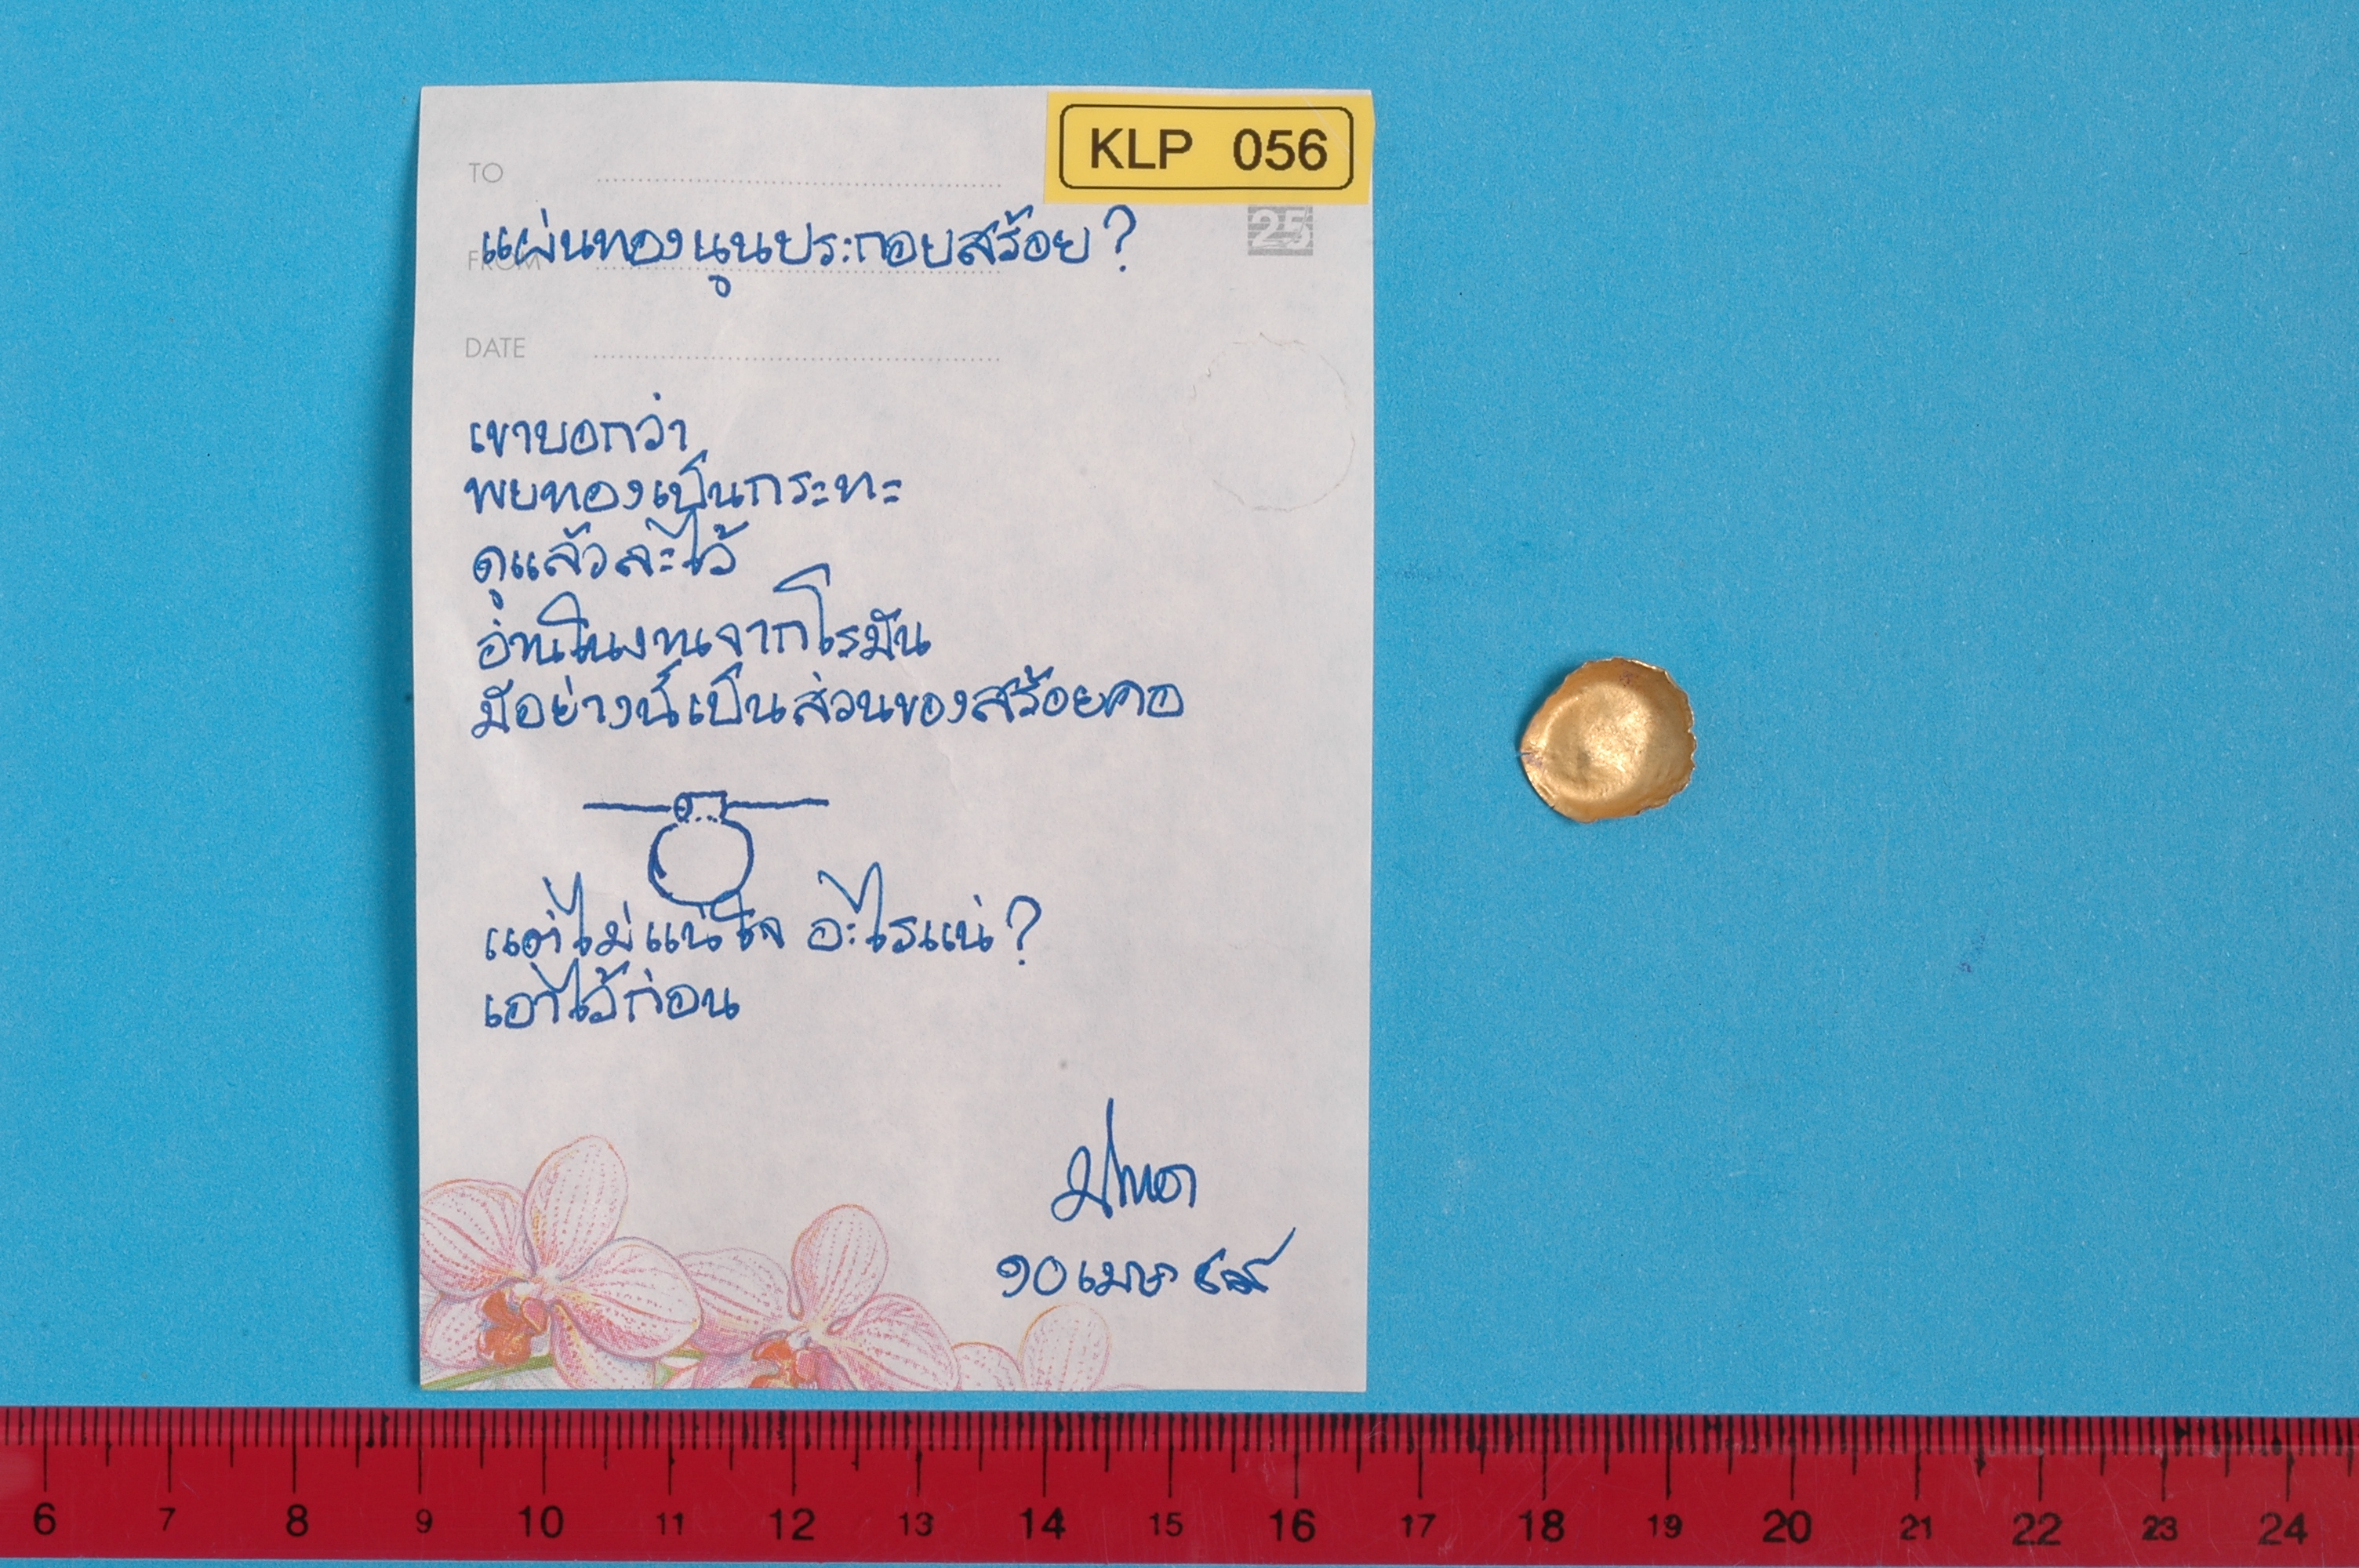 KLP 056
TO
25
แผ่นทองนูนประกอบสร้อย?
FROM
DATE
เขาบอกว่า
พบทองเป็นกระทะ
ดูแล้วล่ะไว้
อ่านในงานจากโรมัน
มีอย่างนี้เป็นส่วนของสร้อยคอ
แต่ไม่แน่ใจ อะไรแน่?
เอาไว้ก่อน
๑๐ เมษา ๔๙
6 7 8 9 10 11 12 13 14 15 16 17 18 19 20 21 22 23 24